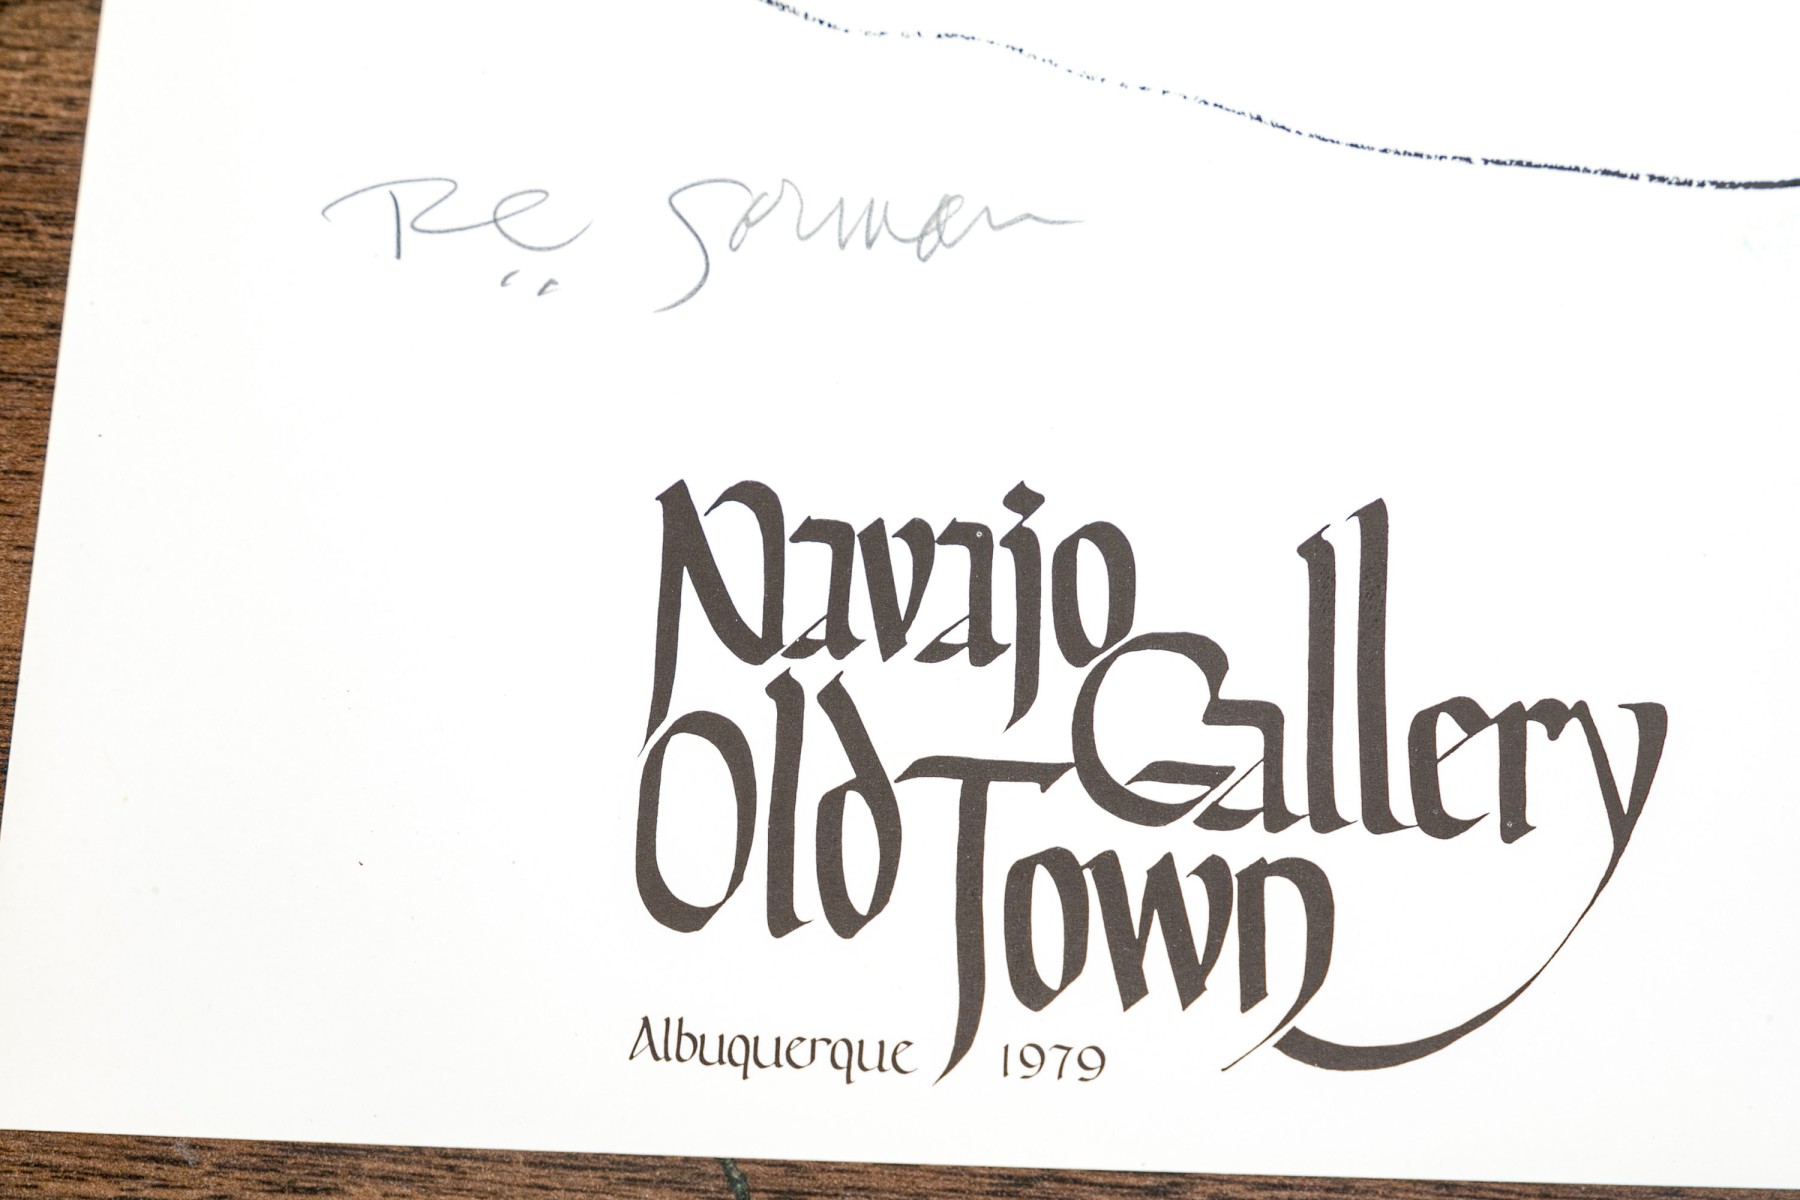 RC Gorman
Navajo
Gallery
Old
Town
Albuquerque 1979